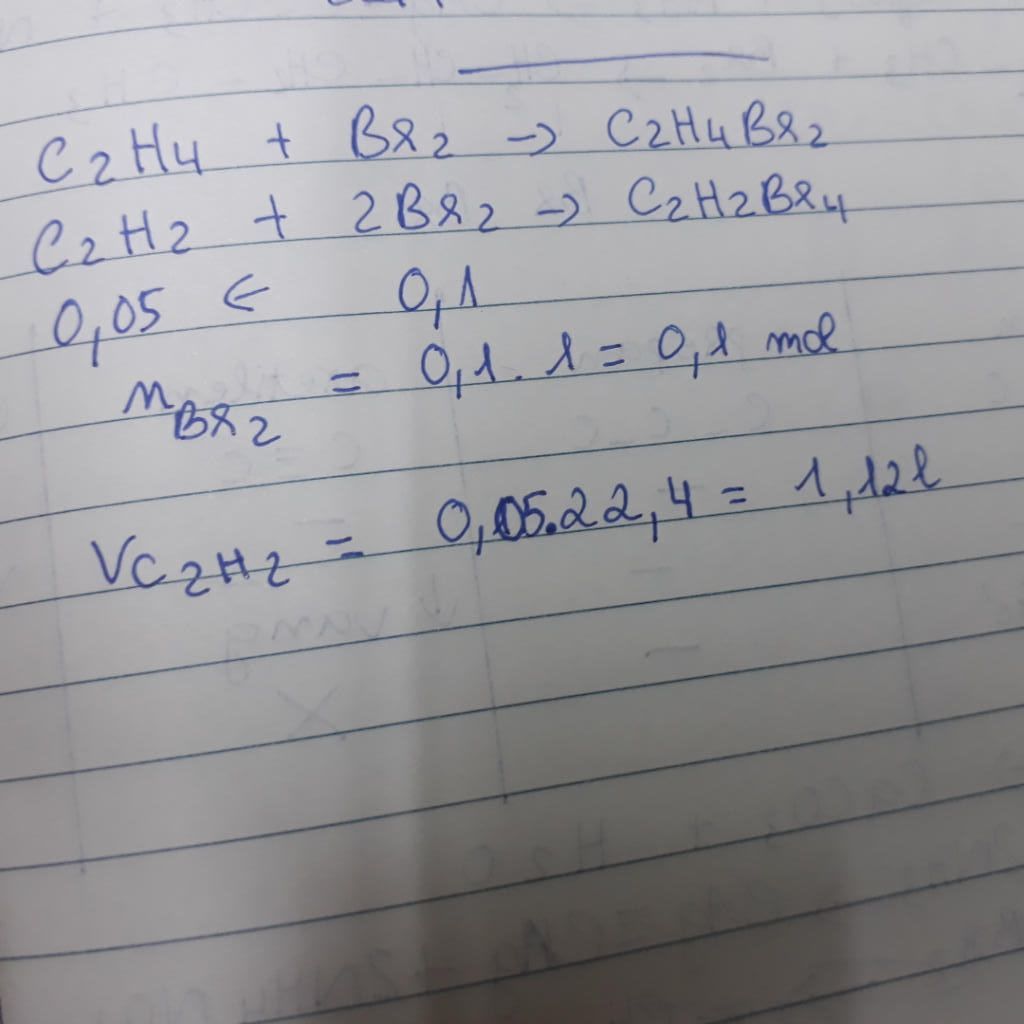 C2H4 + Br2 → C2H4Br2
C2H2 + 2Br2 → C2H2Br4
0,05 ← 0,1
nBr2 = 0,1 . 1 = 0,1 mol
VC2H2 = 0,05.22,4 = 1,12l